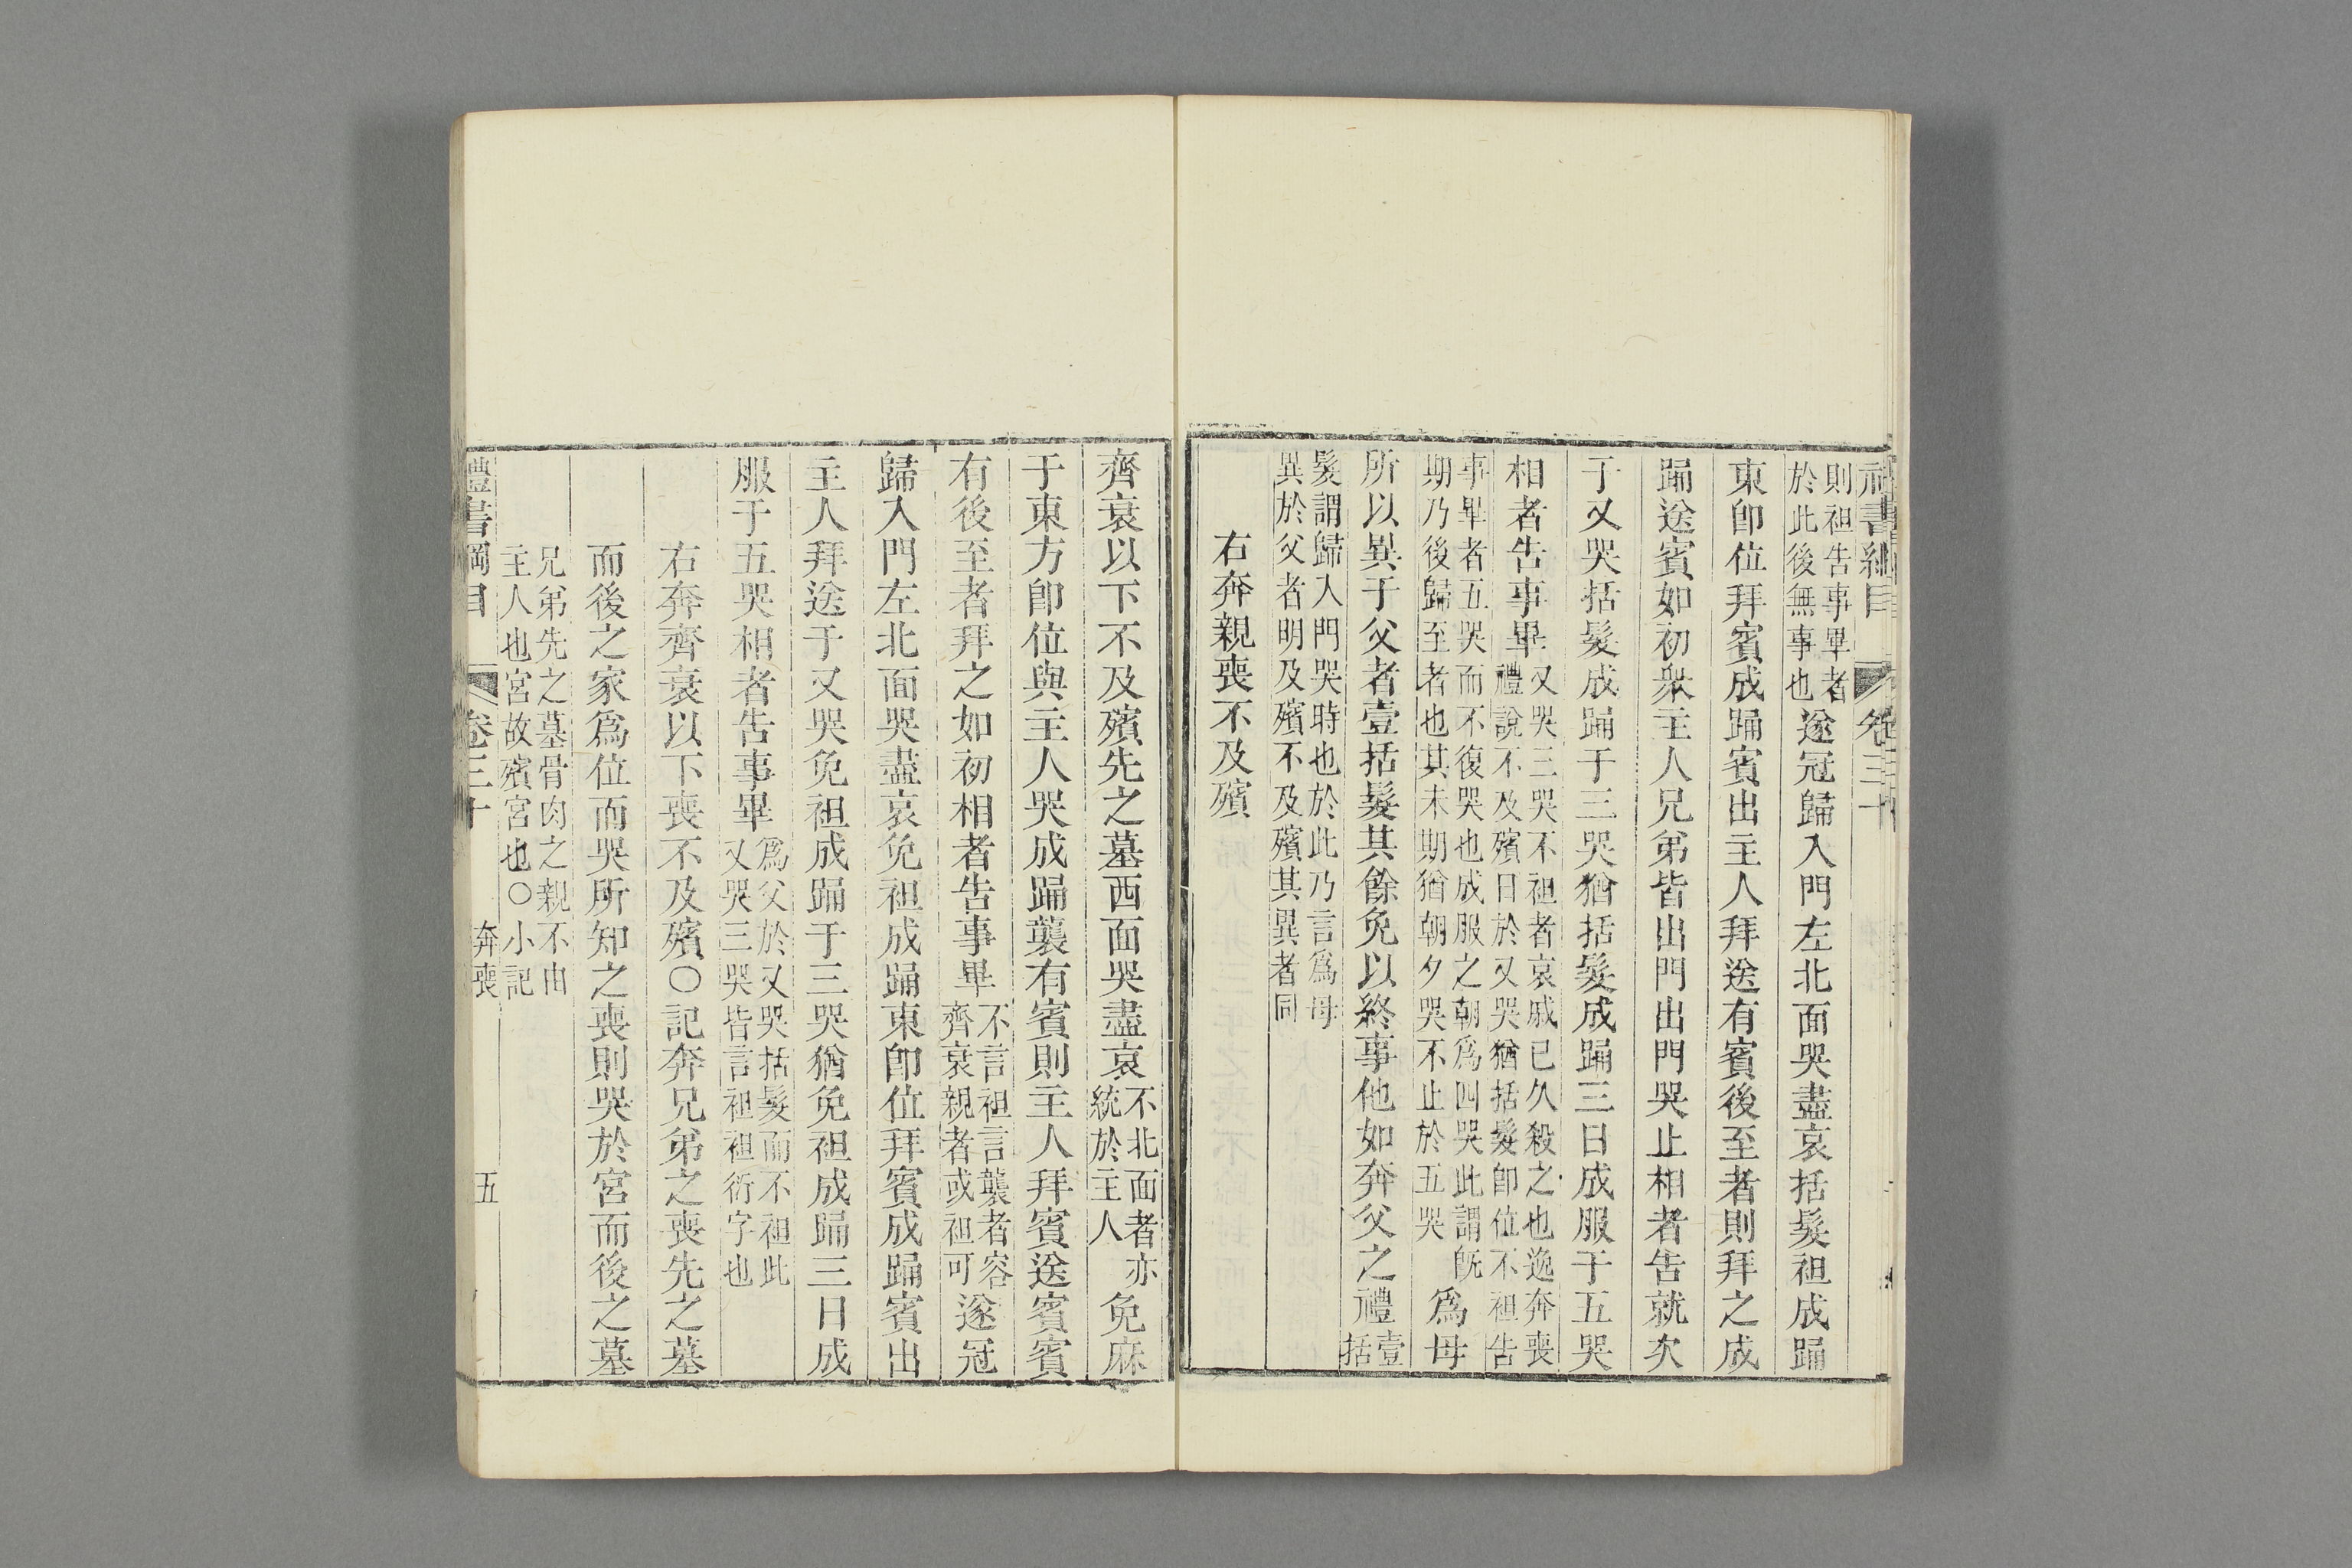 禮書綱目 卷三十
則袒告事畢者
於此後無事也
遂冠歸入門左北面哭盡哀括髮袒成踊
東卽位拜賓成踊賓出主人拜送有賓後至者則拜之成
踊送賓如初衆主人兄弟皆出門出門哭止相者告就次
于又哭括髮成踊于三哭猶括髮成踊三日成服于五哭
相者告事畢
又哭三哭不袒者哀戚已久殺之也逸奔喪
禮說不及殯日於又哭猶括髮卽位不袒告
事畢者五哭而不復哭也成服之朝爲四哭此謂旣
期乃後歸至者也其未期猶朝夕哭不止於五哭
爲母
所以異于父者壹括髮其餘免以終事他如奔父之禮
壹
括
髮謂歸入門哭時也於此乃言爲母
異於父者明及殯不及殯其異者同
右奔親喪不及殯
齊衰以下不及殯先之墓西面哭盡哀
不北面者亦
統於主人
免麻
于東方卽位與主人哭成踊襲有賓則主人拜賓送賓賓
有後至者拜之如初相者告事畢
不言袒言襲者容
齊衰親者或袒可
遂冠
歸入門左北面哭盡哀免袒成踊東卽位拜賓成踊賓出
主人拜送于又哭免袒成踊于三哭猶免袒成踊三日成
服于五哭相者告事畢
爲父於又哭括髮而不袒此
又哭三哭皆言袒袒衍字也
右奔齊衰以下喪不及殯○記奔兄弟之喪先之墓
而後之家爲位而哭所知之喪則哭於宮而後之墓
兄弟先之墓骨肉之親不由
主人也宮故殯宮也○小記
禮書綱目 卷三十 奔喪 五